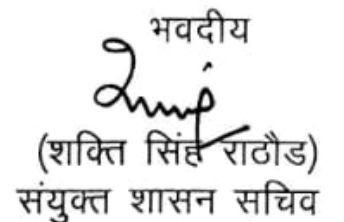 भवदीय
(शक्ति सिंह राठौड)
संयुक्त शासन सचिव